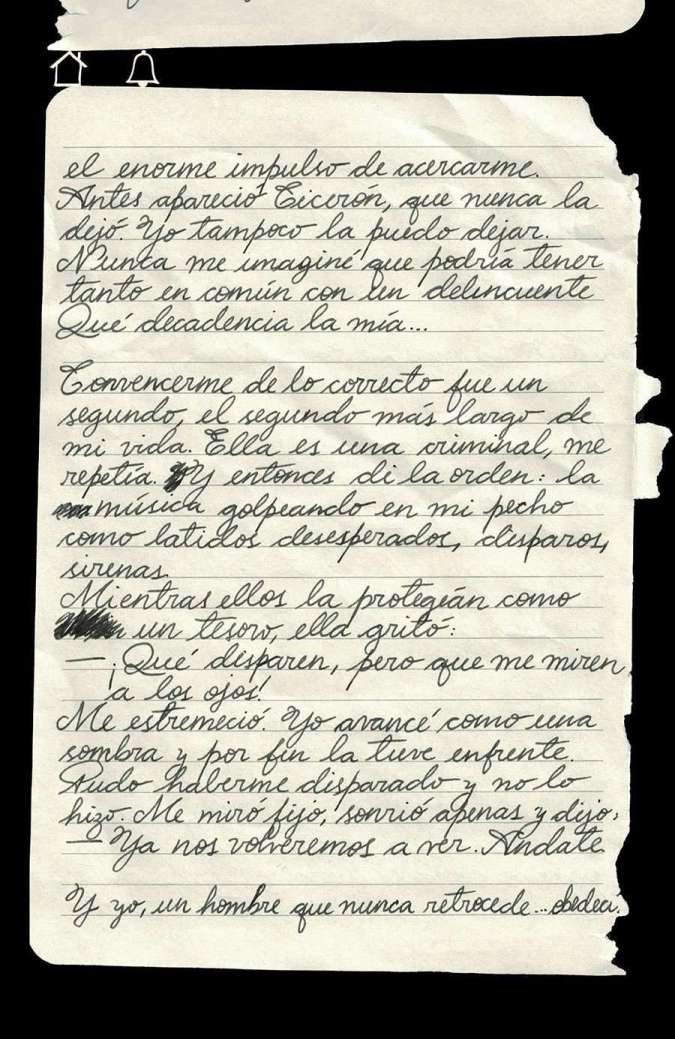 el enorme impulso de acercarme.
Antes apareció Cicerón, que nunca la
dejó. Yo tampoco la puedo dejar.
Nunca me imaginé que podría tener
tanto en común con un delincuente
Qué decadencia la mía...
Convencerme de lo correcto fue un
segundo, el segundo más largo de
mi vida. Ella es una criminal, me
repetía. Y entonces di la orden: la
música golpeando en mi pecho
como latidos desesperados, disparos,
sirenas.
Mientras ellos la protegían como
un tesoro, ella gritó:
— ¡Qué disparen, pero que me miren
a los ojos!
Me estremeció. Yo avancé como una
sombra y por fin la tuve enfrente.
Pudo haberme disparado y no lo
hizo. Me miró fijo, sonrió apenas y dijo:
— Ya nos volveremos a ver. Andate
Y yo, un hombre que nunca retrocede... obedecí.